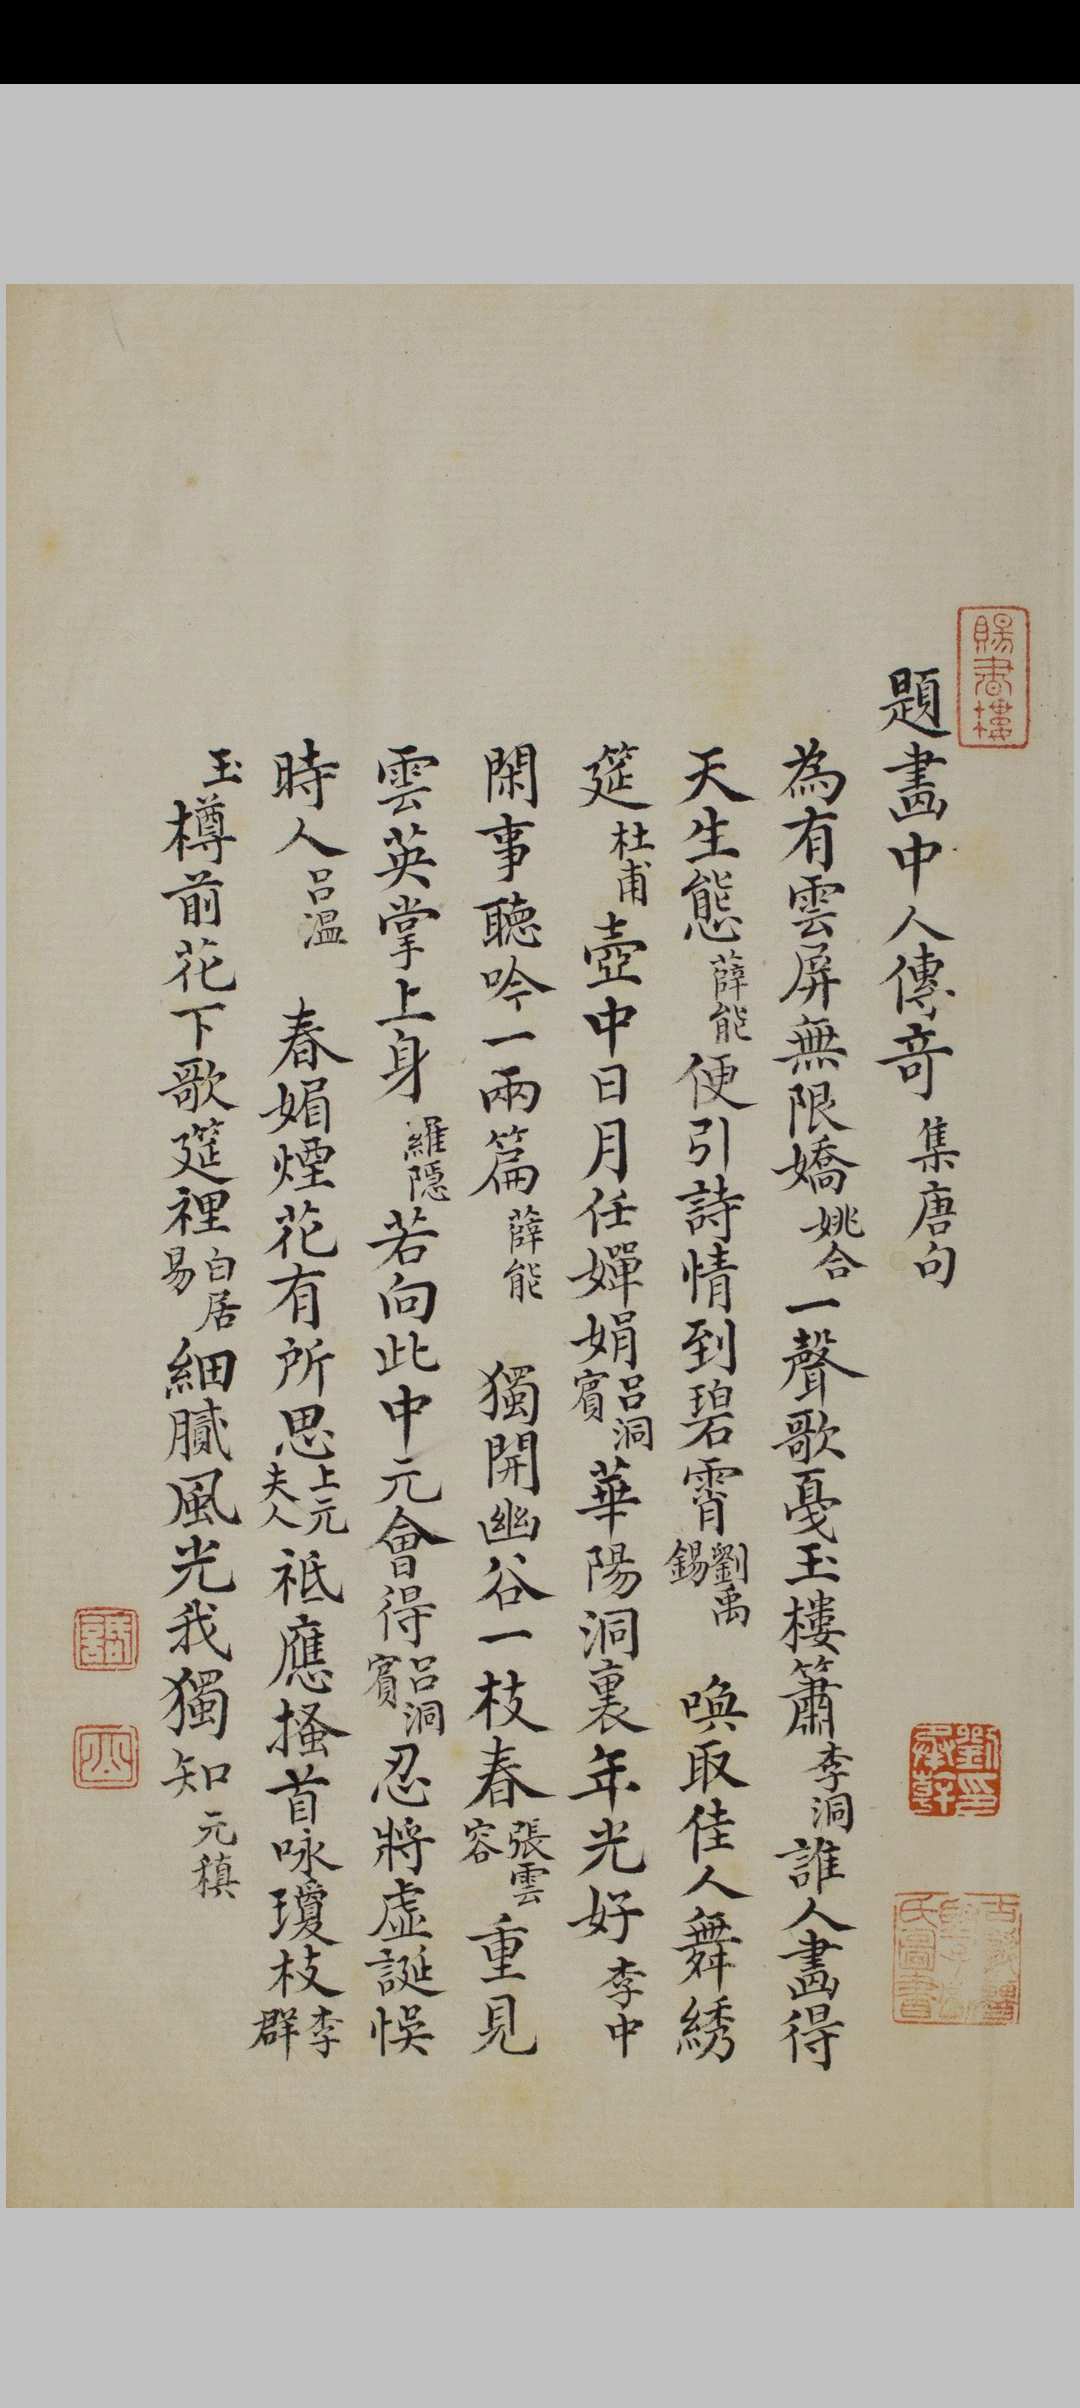 題畫中人傳奇 集唐句
為有雲屏無限嬌 姚合 一聲歌戛玉樓簫 李洞 誰人畫得
天生態 薛能 便引詩情到碧霄 劉禹錫 喚取佳人舞綉
筵 杜甫 壺中日月任嬋娟 呂洞賓 華陽洞裏年光好 李中
閑事聽吟一兩篇 薛能 獨開幽谷一枝春 張雲容 重見
雲英掌上身 羅隱 若向此中元會得 呂洞賓 忍將虛誕悞
時人 呂温 春媚煙花有所思 上元夫人 祗應搔首咏瓊枝 李群
玉 樽前花下歌筵裡 白居易 細膩風光我獨知 元稹
賜書樓